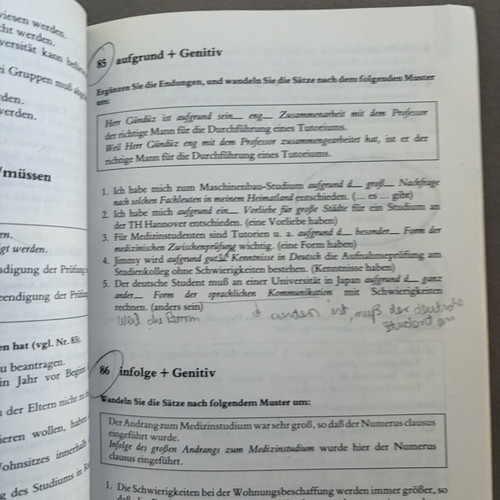 wiesen werden.
cht werden.
versität kann
ei Gruppen muß
rden.
werden.
/müssen
en.
igt werden.
ndigung der Prüfung
eendigung der Prüfung
en hat (vgl. Nr. 83).
u beantragen.
in Jahr vor Beginn
n der Eltern nicht zu
ieren wollen, haben
ohnsitzes innerhalb
g des Studiums in
85 aufgrund + Genitiv
Ergänzen Sie die Endungen, und wandeln Sie die Sätze nach dem folgenden Muster
um:
Herr Gündüz ist aufgrund sein__ eng__ Zusammenarbeit mit dem Professor
der richtige Mann für die Durchführung eines Tutoriums.
Weil Herr Gündüz eng mit dem Professor zusammengearbeitet hat, ist er der
richtige Mann für die Durchführung eines Tutoriums.
1. Ich habe mich zum Maschinenbau-Studium aufgrund d__ groß__ Nachfrage
nach solchen Fachleuten in meinem Heimatland entschieden. (... es ... gibt)
2. Ich habe mich aufgrund ein__ Vorliebe für große Städte für ein Studium an
der TH Hannover entschieden. (eine Vorliebe haben)
3. Für Medizinstudenten sind Tutorien u. a. aufgrund d__ besonder__ Form der
medizinischen Zwischenprüfung wichtig. (eine Form haben)
4. Jimmy wird aufgrund gut__ Kenntnisse in Deutsch die Aufnahmeprüfung am
Studienkolleg ohne Schwierigkeiten bestehen. (Kenntnisse haben)
5. Der deutsche Student muß an einer Universität in Japan aufgrund d__ ganz
ander__ Form der sprachlichen Kommunikation mit Schwierigkeiten
rechnen. (anders sein)
ist, muß der deutsche
Student an
86 infolge + Genitiv
Wandeln Sie die Sätze nach folgendem Muster um:
Der Andrang zum Medizinstudium war sehr groß, so daß der Numerus clausus
eingeführt wurde.
Infolge des großen Andrangs zum Medizinstudium wurde hier der Numerus
clausus eingeführt.
1. Die Schwierigkeiten bei der Wohnungsbeschaffung werden immer größer, so